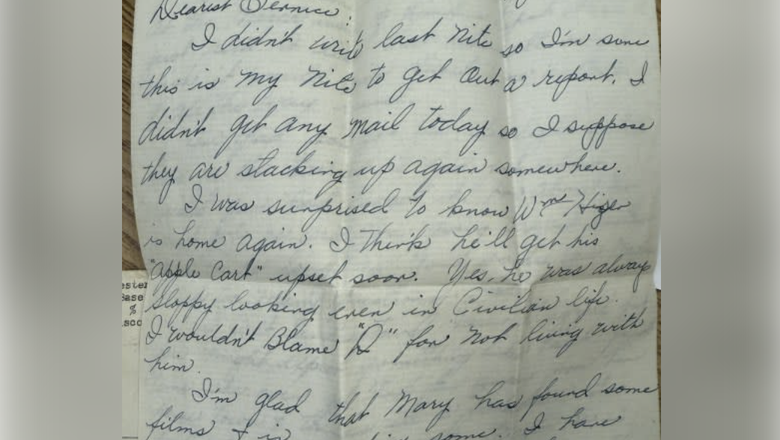 Dearest Bernice:
I didn't write last nite so I'm sure
this is my nite to get out a report. I
didn't get any mail today so I suppose
they are stacking up again somewhere.
I was surprised to know Wm Higer
is home again. I think he'll get his
"apple cart" upset soon. Yes, he was always
sloppy looking even in Civilian life.
I wouldn't Blame "D" for not living with
him.
I'm glad that Mary has found some
films + is some. I have
ester
Base
%